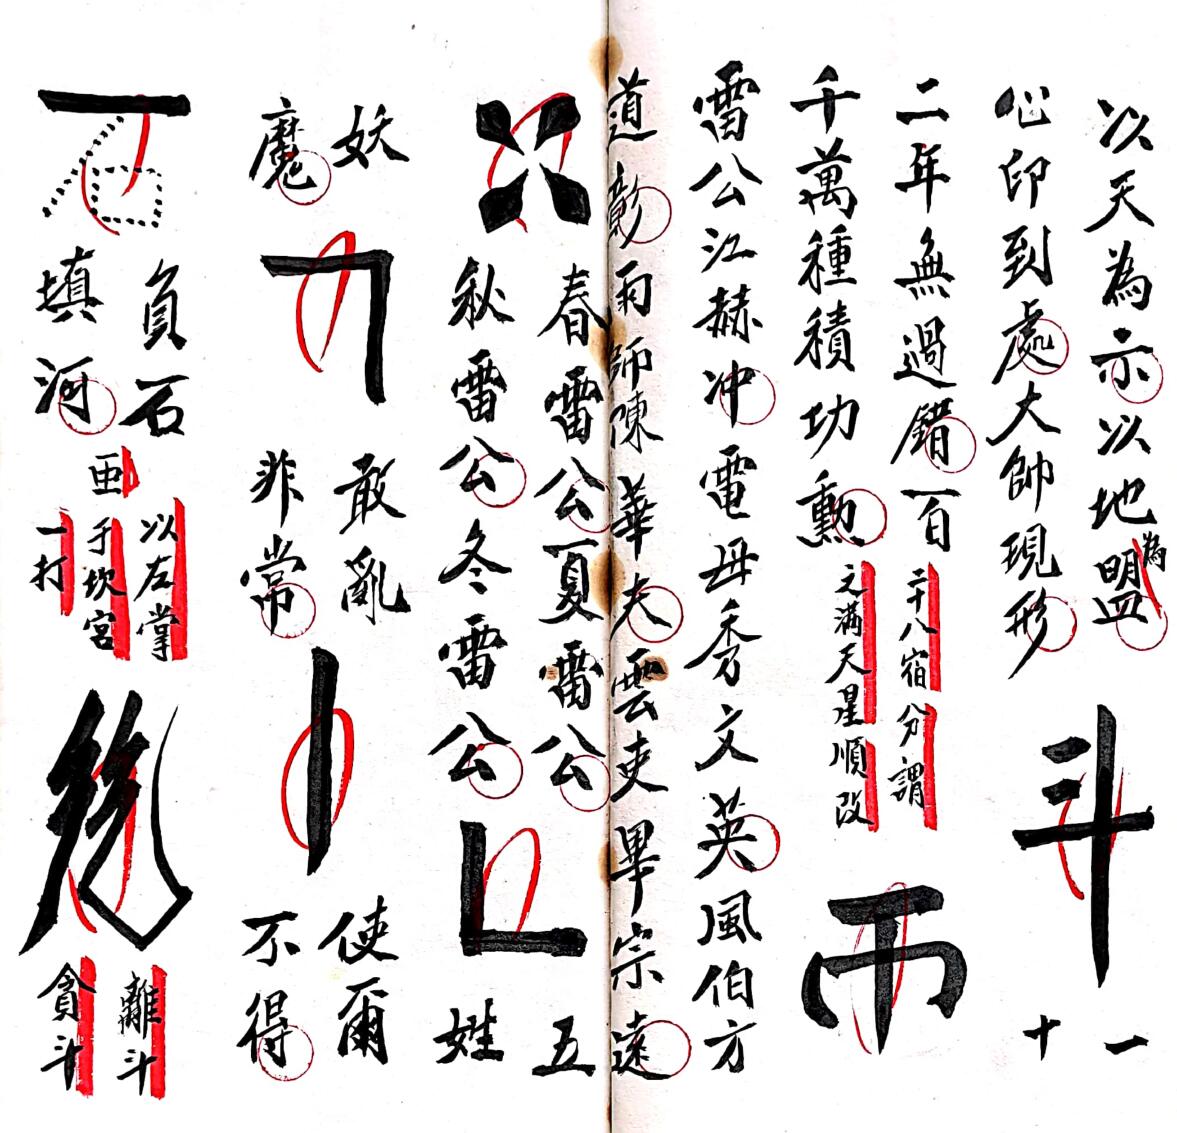 以天為示以地為盟
心印到處大帥現形
斗
一
十
二年無過錯一百
二十八宿分謂
之满天星順改
千萬種積功勳
雨
雷公江赫冲電母秀文英風伯方
道彰雨師陳華夫雲吏畢宗遠
春雷公夏雷公
秋雷公冬雷公
五
姓
妖
魔
敢亂
非常
使爾
不得
石
負石
填河
画
以左掌
于坎宮
一打
離斗
貪斗